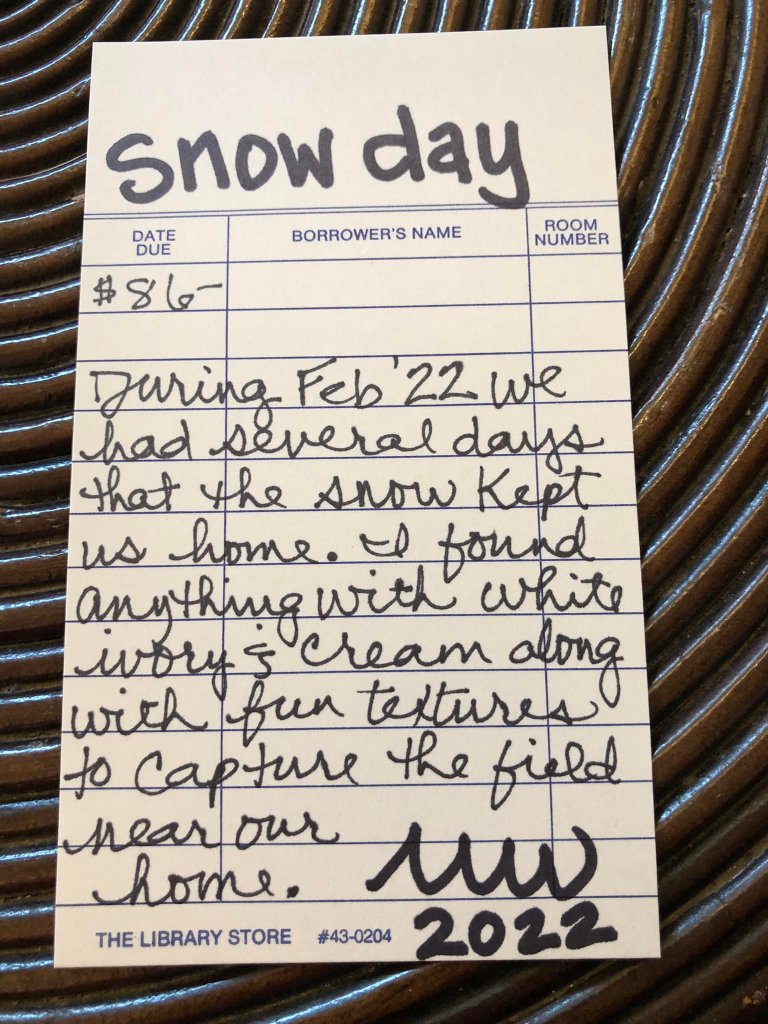 snow day
DATE DUE
BORROWER'S NAME
ROOM NUMBER
$86-
During Feb '22 we
had several days
that the snow kept
us home. I found
anything with white
ivory & cream along
with fun textures
to capture the field
near our
home.
2022
THE LIBRARY STORE #43-0204